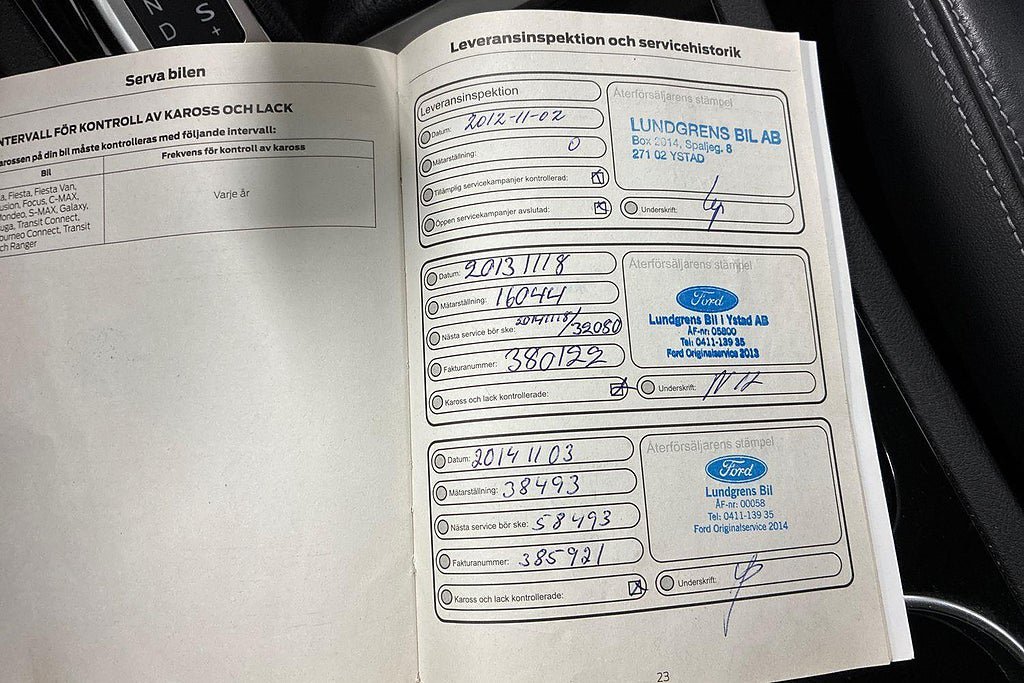 N
D
S
+
Serva bilen
NTERVALL FÖR KONTROLL AV KAROSS OCH LACK
arossen på din bil måste kontrolleras med följande intervall:
Bil
Frekvens för kontroll av kaross
a, Fiesta, Fiesta Van,
usion, Focus, C-MAX,
Mondeo, S-MAX, Galaxy,
uga, Transit Connect,
ourneo Connect, Transit
ch Ranger
Varje år
Leveransinspektion och servicehistorik
Leveransinspektion
Datum: 2012-11-02
Mätarställning: 0
Tillämplig servicekampanjer kontrollerad:
Öppen servicekampanjer avslutad:
Återförsäljarens stämpel
LUNDGRENS BIL AB
Box 2014, Spaljeg. 8
271 02 YSTAD
Underskrift:
Datum: 20131118
Mätarställning: 16044
Nästa service bör ske: 20141118/32080
Fakturanummer: 380122
Kaross och lack kontrollerade:
Återförsäljarens stämpel
Ford
Lundgrens Bil i Ystad AB
ÅF-nr: 05800
Tel: 0411-139 35
Ford Originalservice 2013
Underskrift:
Datum: 20141103
Mätarställning: 38493
Nästa service bör ske: 58493
Fakturanummer: 385921
Kaross och lack kontrollerade:
Återförsäljarens stämpel
Ford
Lundgrens Bil
ÅF-nr: 00058
Tel: 0411-139 35
Ford Originalservice 2014
Underskrift:
23